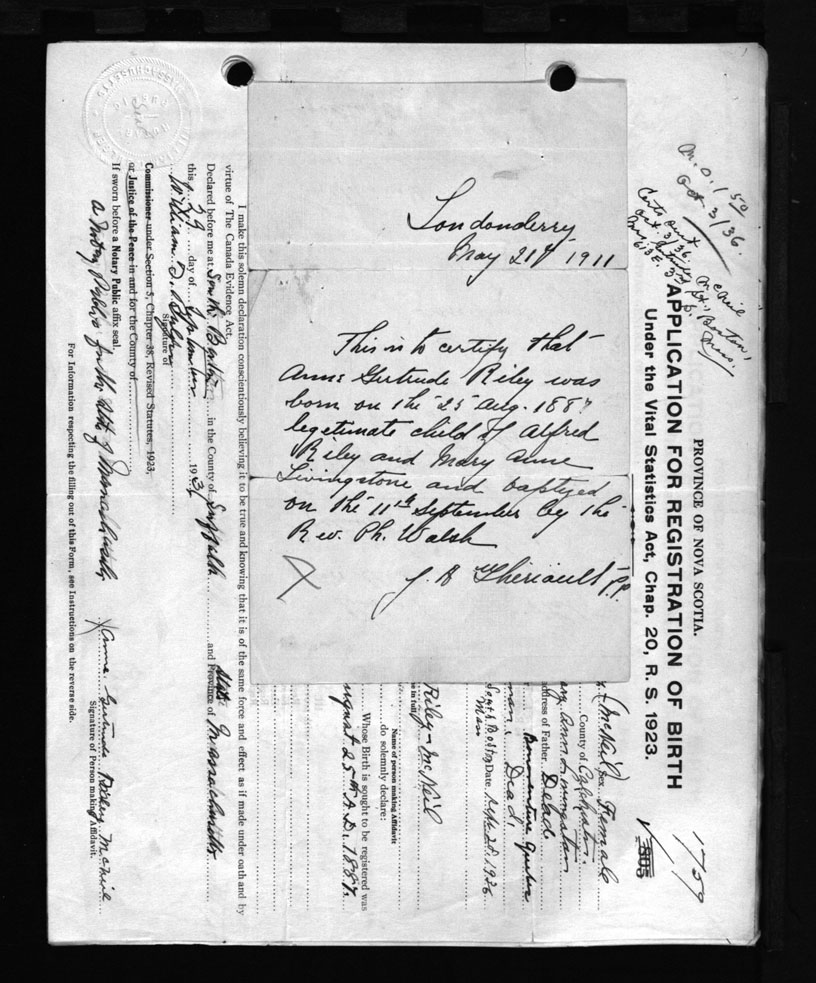 Londonderry
May 21st 1911
This is to certify that
Anne Gertrude Riley was
born on the 25 Aug. 1887
legitimate child of Alfred
Riley and Mary Anne
Livingstone and baptized
on the 11th September by the
Rev. Ph. Walsh
J. B. Theriault P.P.
M.O. 1 50
Oct. 3/36.
PROVINCE OF NOVA SCOTIA.
APPLICATION FOR REGISTRATION OF BIRTH
Under the Vital Statistics Act, Chap. 20, R. S. 1923.
1709
805
McNeil Sex Female
County of Colchester
Ann Livingston
address of Father Dead
Bonaventure Quebec
Dead
South Boston Date Sept. 28, 1936
Mass
Riley-McNeil
Name of person making Affidavit
do solemnly declare:
Whose Birth is sought to be registered was
August 25th A.D. 1887.
I make this solemn declaration conscientiously believing it to be true and knowing that it is of the same force and effect as if made under oath and by
virtue of The Canada Evidence Act.
Declared before me at South Boston in the County of Suffolk and Province of Massachusetts
this 29 day of September 193
William D.
Signature of
Commissioner under Section 3, Chapter 38, Revised Statutes, 1923.
or Justice of the Peace in and for the County of
If sworn before a Notary Public affix seal.
a Notary Public for the State of Massachusetts
Anne Gertrude Riley McNeil
Signature of Person making Affidavit.
For Information respecting the filling out of this Form, see Instructions on the reverse side.